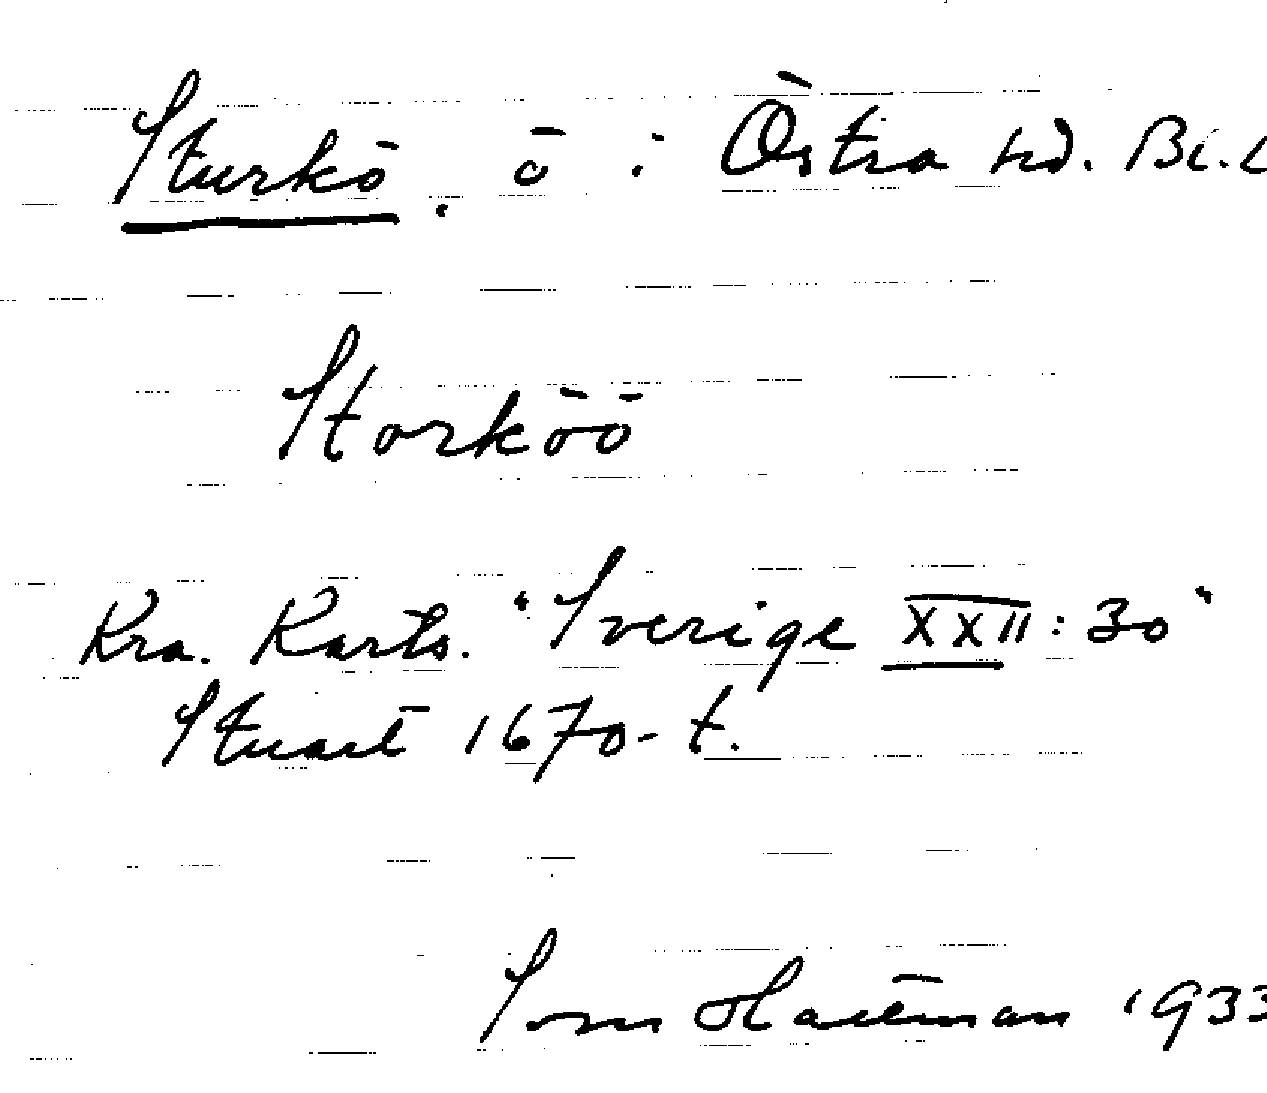 Sturkö. ö i Östra hd. Bl. L
Storköö
Kra. Karts. "Sverige XXII: 30"
Stuart 1670-t.
1933